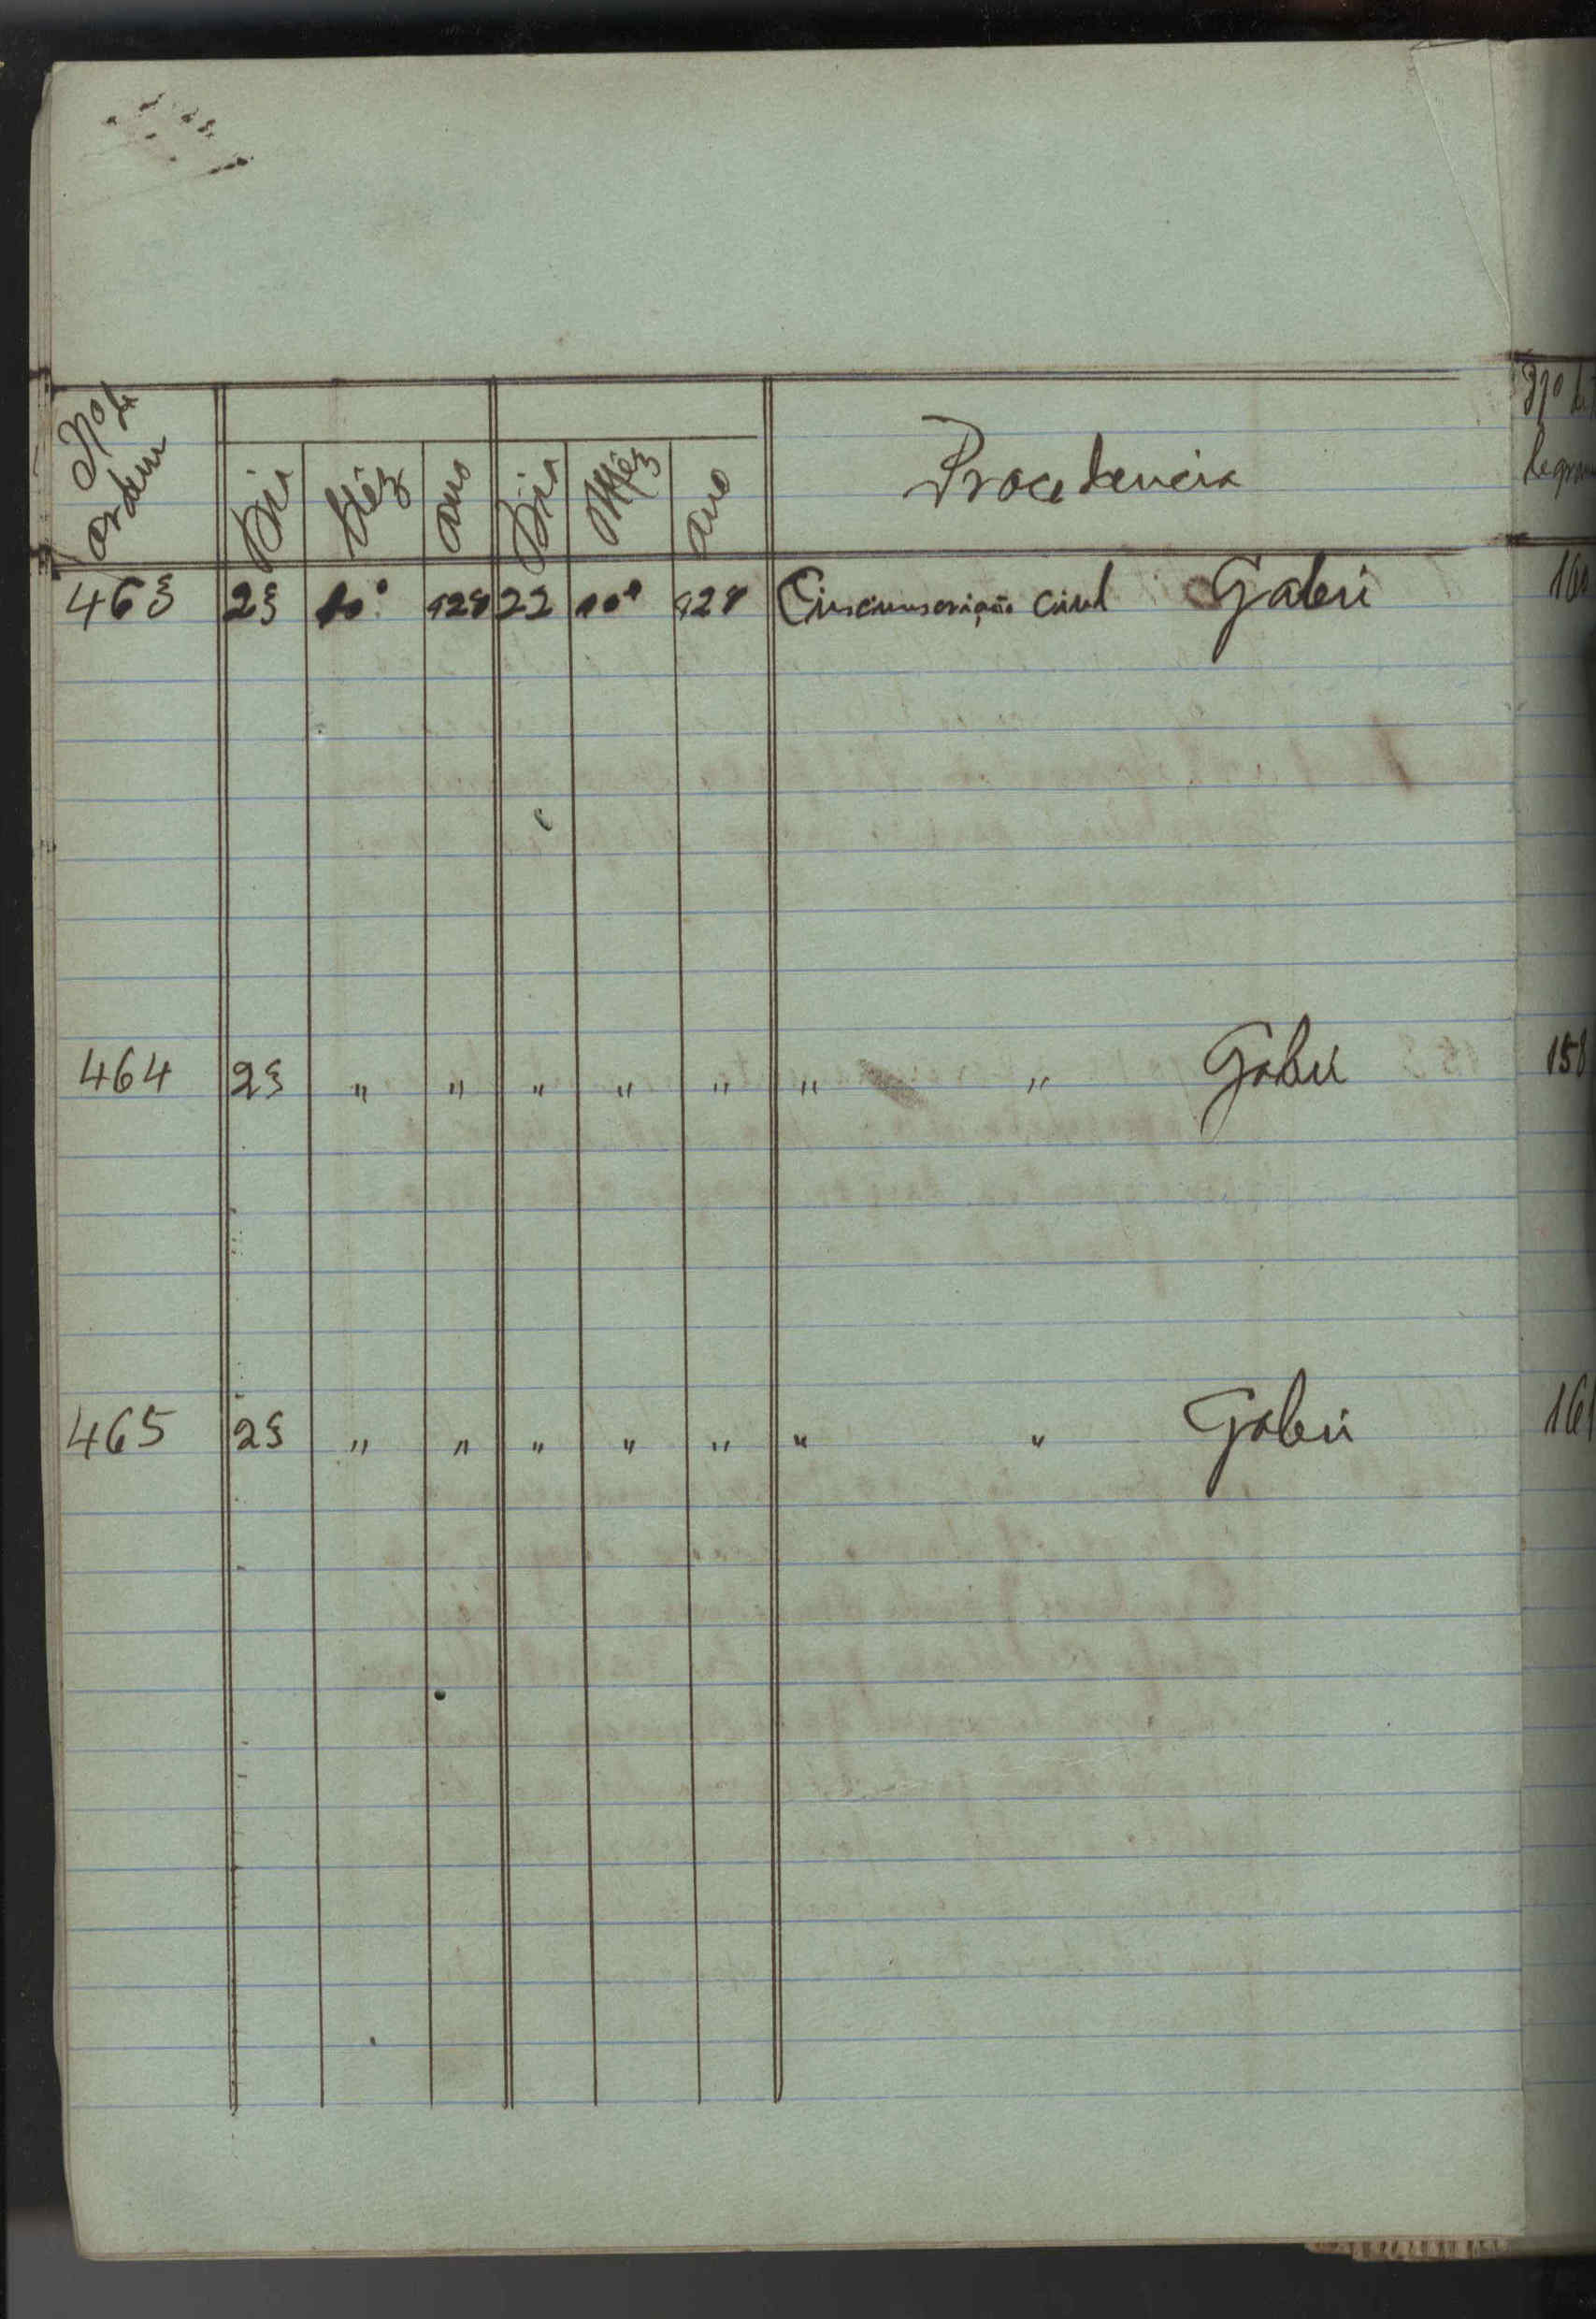 Nº de ordem Dia Mêz ano Dia Mêz ano Procedencia
463 23 10º 928 22 10º 928 Circunscrição Civil Gabú
464 23 " " " " " " " Gabú
465 23 " " " " " " " Gabú
Nº de
160
158
161